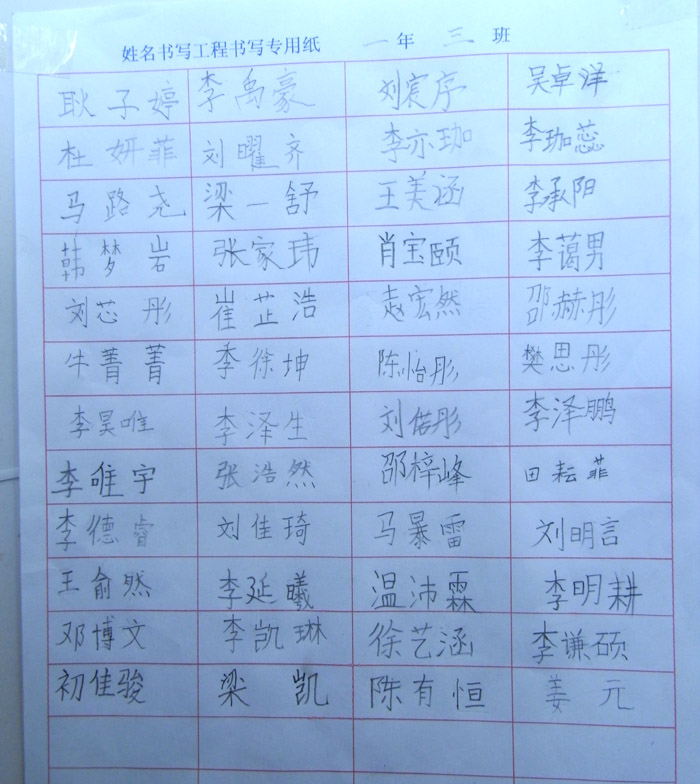 姓名书写工程书写专用纸 一年 三 班
耿子婷 李禹豪 刘宸序 吴卓洋
杜妍菲 刘曜齐 李亦珈 李珈蕊
马路尧 梁一舒 王美涵 李承阳
韩梦岩 张家玮 肖宝颐 李蔼男
刘芯彤 崔芷浩 赵宏然 邵赫彤
牛菁菁 季徐坤 陈怡彤 樊思彤
李昊唯 李泽生 刘偌彤 李泽鹏
李唯宇 张浩然 邵梓峰 田耘菲
李德睿 刘佳琦 马暴雷 刘明言
王俞然 李延曦 温沛霖 李明耕
邓博文 李凯琳 徐艺涵 李谦硕
初佳骏 梁凯 陈有恒 姜元